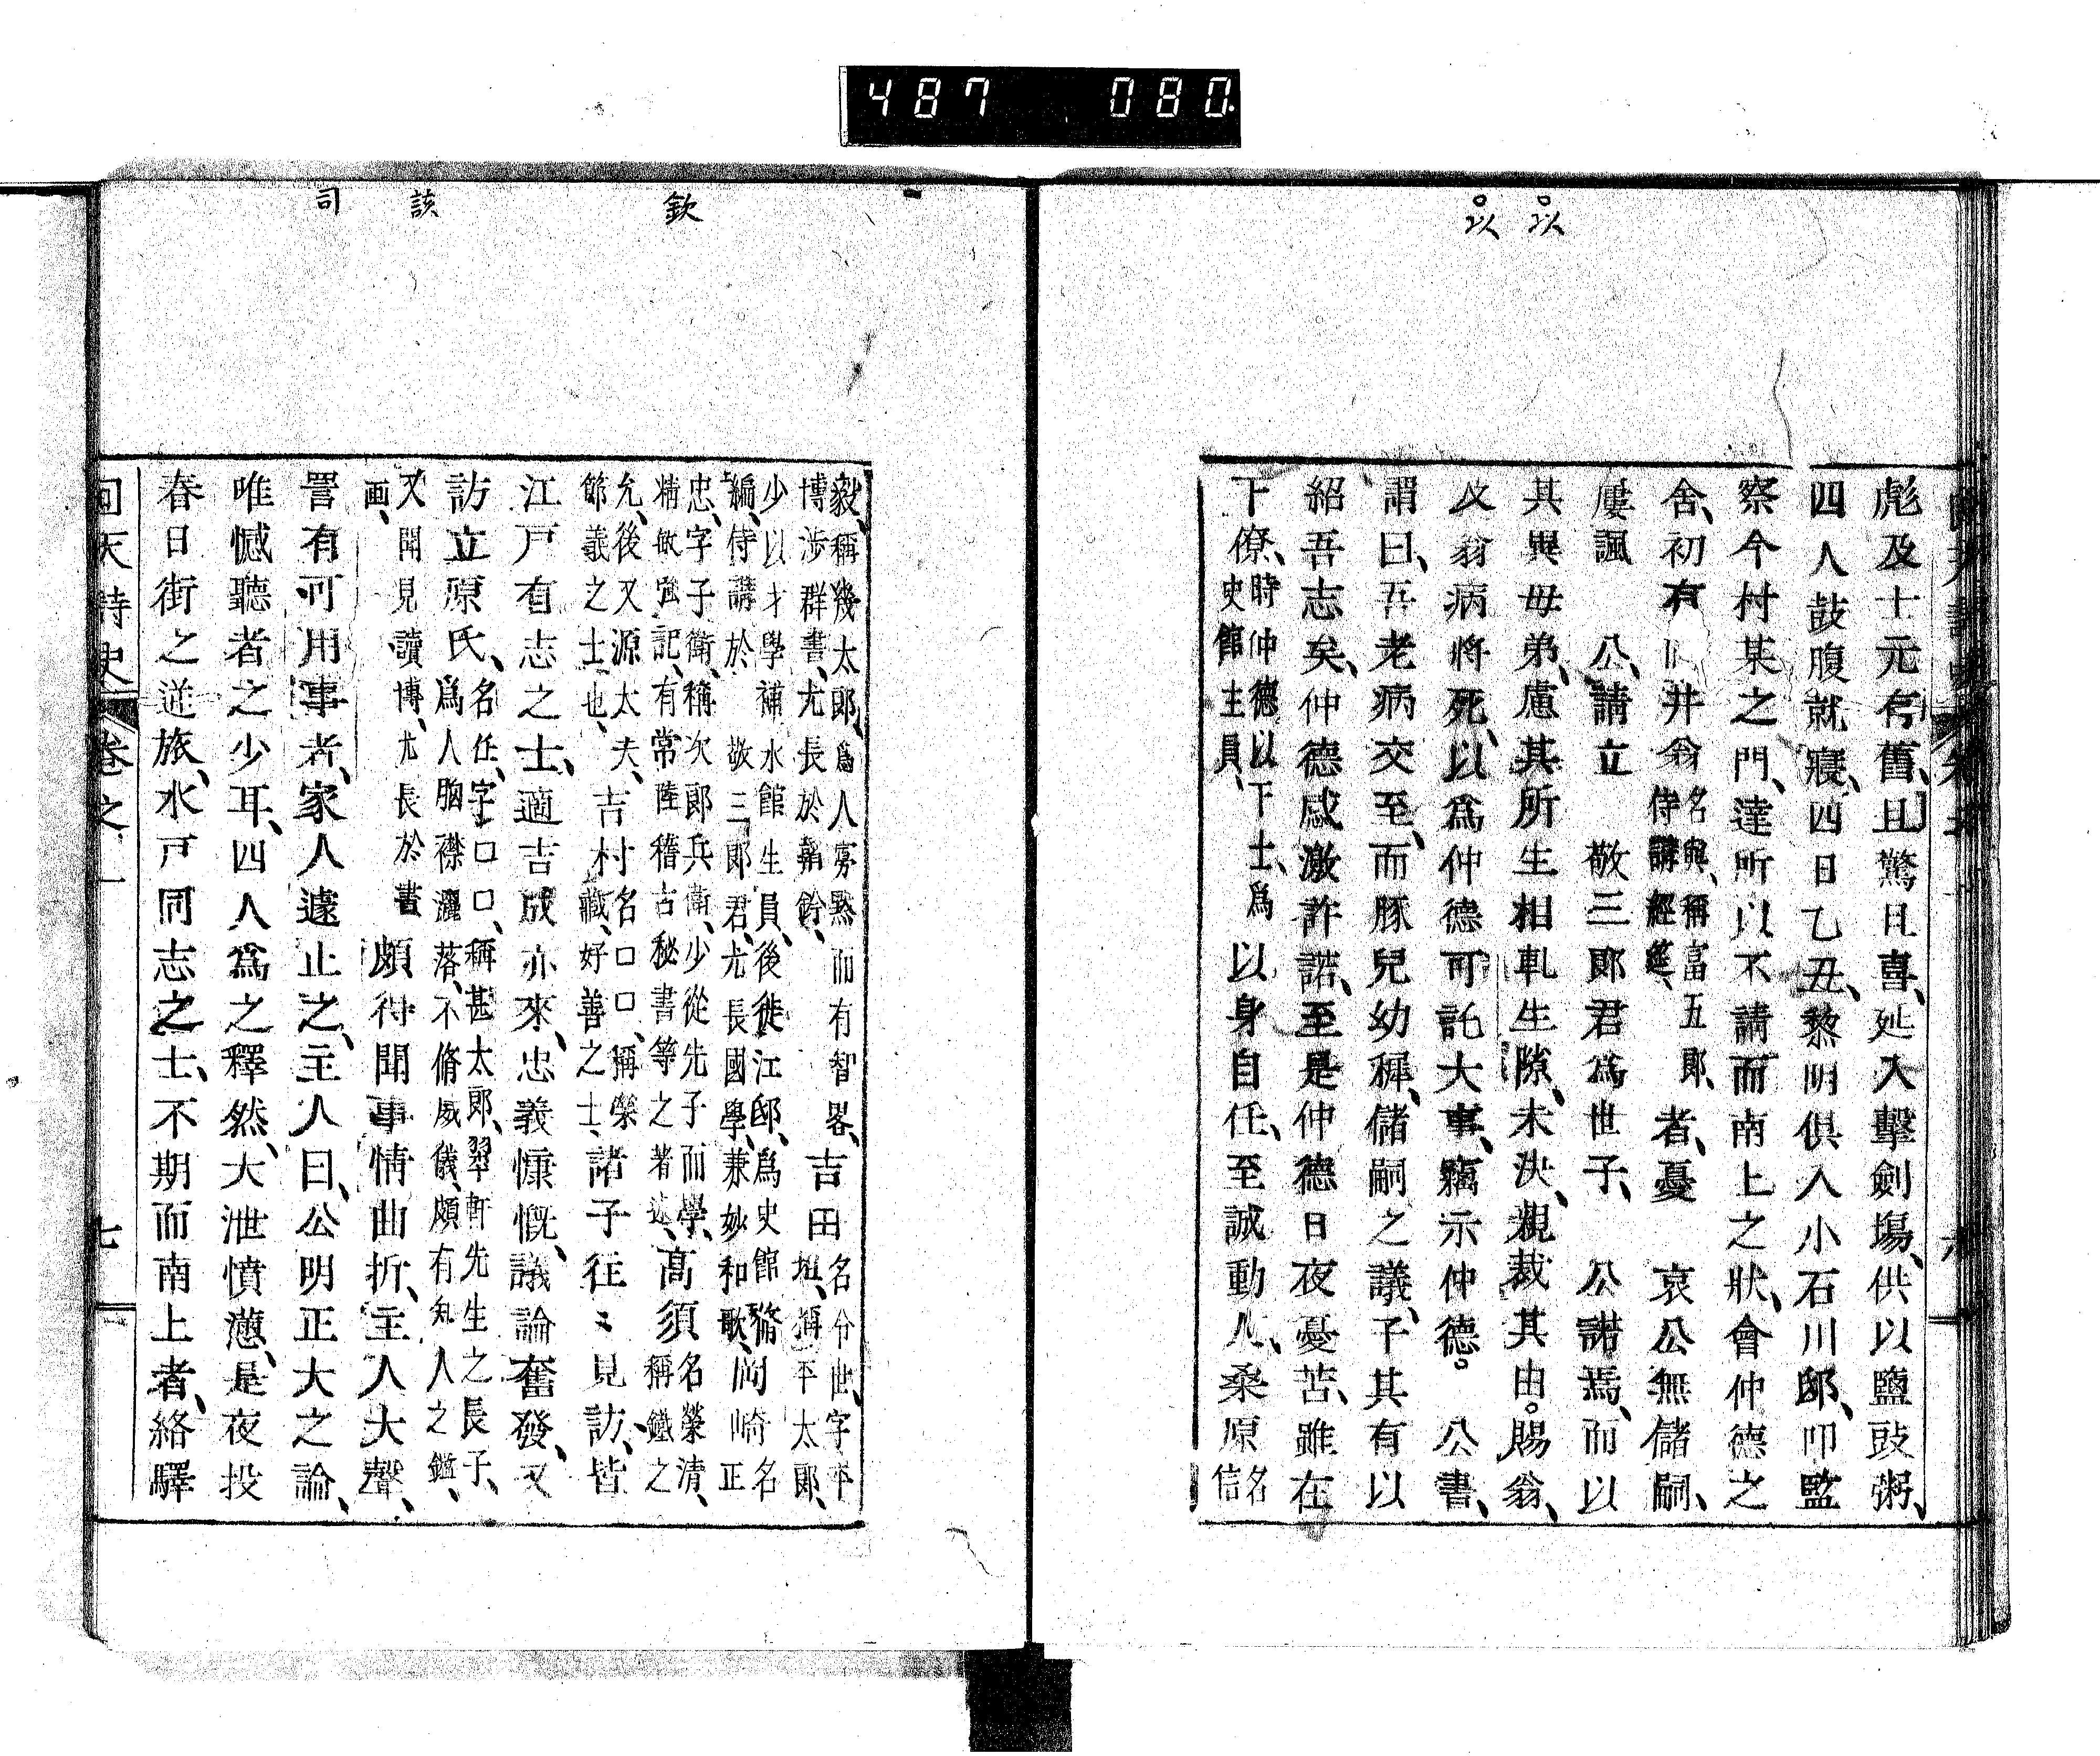 487 080
以 以
彪及士元有舊、且驚且喜、延入擊劍場、供以鹽豉粥、
四人鼓腹就寢、四日乙丑、黎明俱入小石川邸、叩監
察今村某之門、達所以不請而南上之狀、會仲德之
舍、初有 井翁名與、稱富五郎、侍講經筵、者、憂 哀公無儲嗣、
屢諷 公、請立 敬三郎君爲世子、 公諾焉、而以
其異母弟、慮其所生相軋生隙、未決、親裁其由。賜翁、
及翁病將死、以爲仲德可託大事、竊示仲德。 公書、
謂曰、吾老病交至、而豚兒幼穉、儲嗣之議、子其有以
紹吾志矣、仲德感激許諾、至是仲德日夜憂苦、雖在
下僚、時仲德以下士、爲史館生員、以身自任、至誠動人、桑原名信
欽 該 司
毅、稱幾太郎、爲人寡默而有智畧、吉田名令世、字平
博渉群書、尤長於韜鈐、坦、稱平太郎、
少以才學補水館生員、後徙江邸、爲史館 岡崎名
編、侍講於 敬三郎君、尤長國學、兼妙和歌、正
忠、字子衛、稱次郎兵衛、少從先子而學、高須名榮清、
精敏強記、有常陸稽古秘書等之著述、稱鐵之
允、後又源太夫、吉村名口口、稱榮 諸子往々見訪、皆
節義之士也、藏、好善之士、
江戸有志之士、適吉成亦來、忠義慷慨、議論奮發、又
訪立原氏、名任、字口口、稱甚太郎、翠軒先生之長子、
爲人胸襟灑落、不脩威儀、頗有知人之鑑、
又聞見讀博、尤長於書画、頗得聞事情曲折、主人大聲、
詈有司用事者、家人遽止之、主人曰、公明正大之論、
唯憾聽者之少耳、四人爲之釋然、大泄憤懣、是夜投
春日街之逆旅、水戸同志之士、不期而南上者、絡驛
回天詩史 卷之一 七